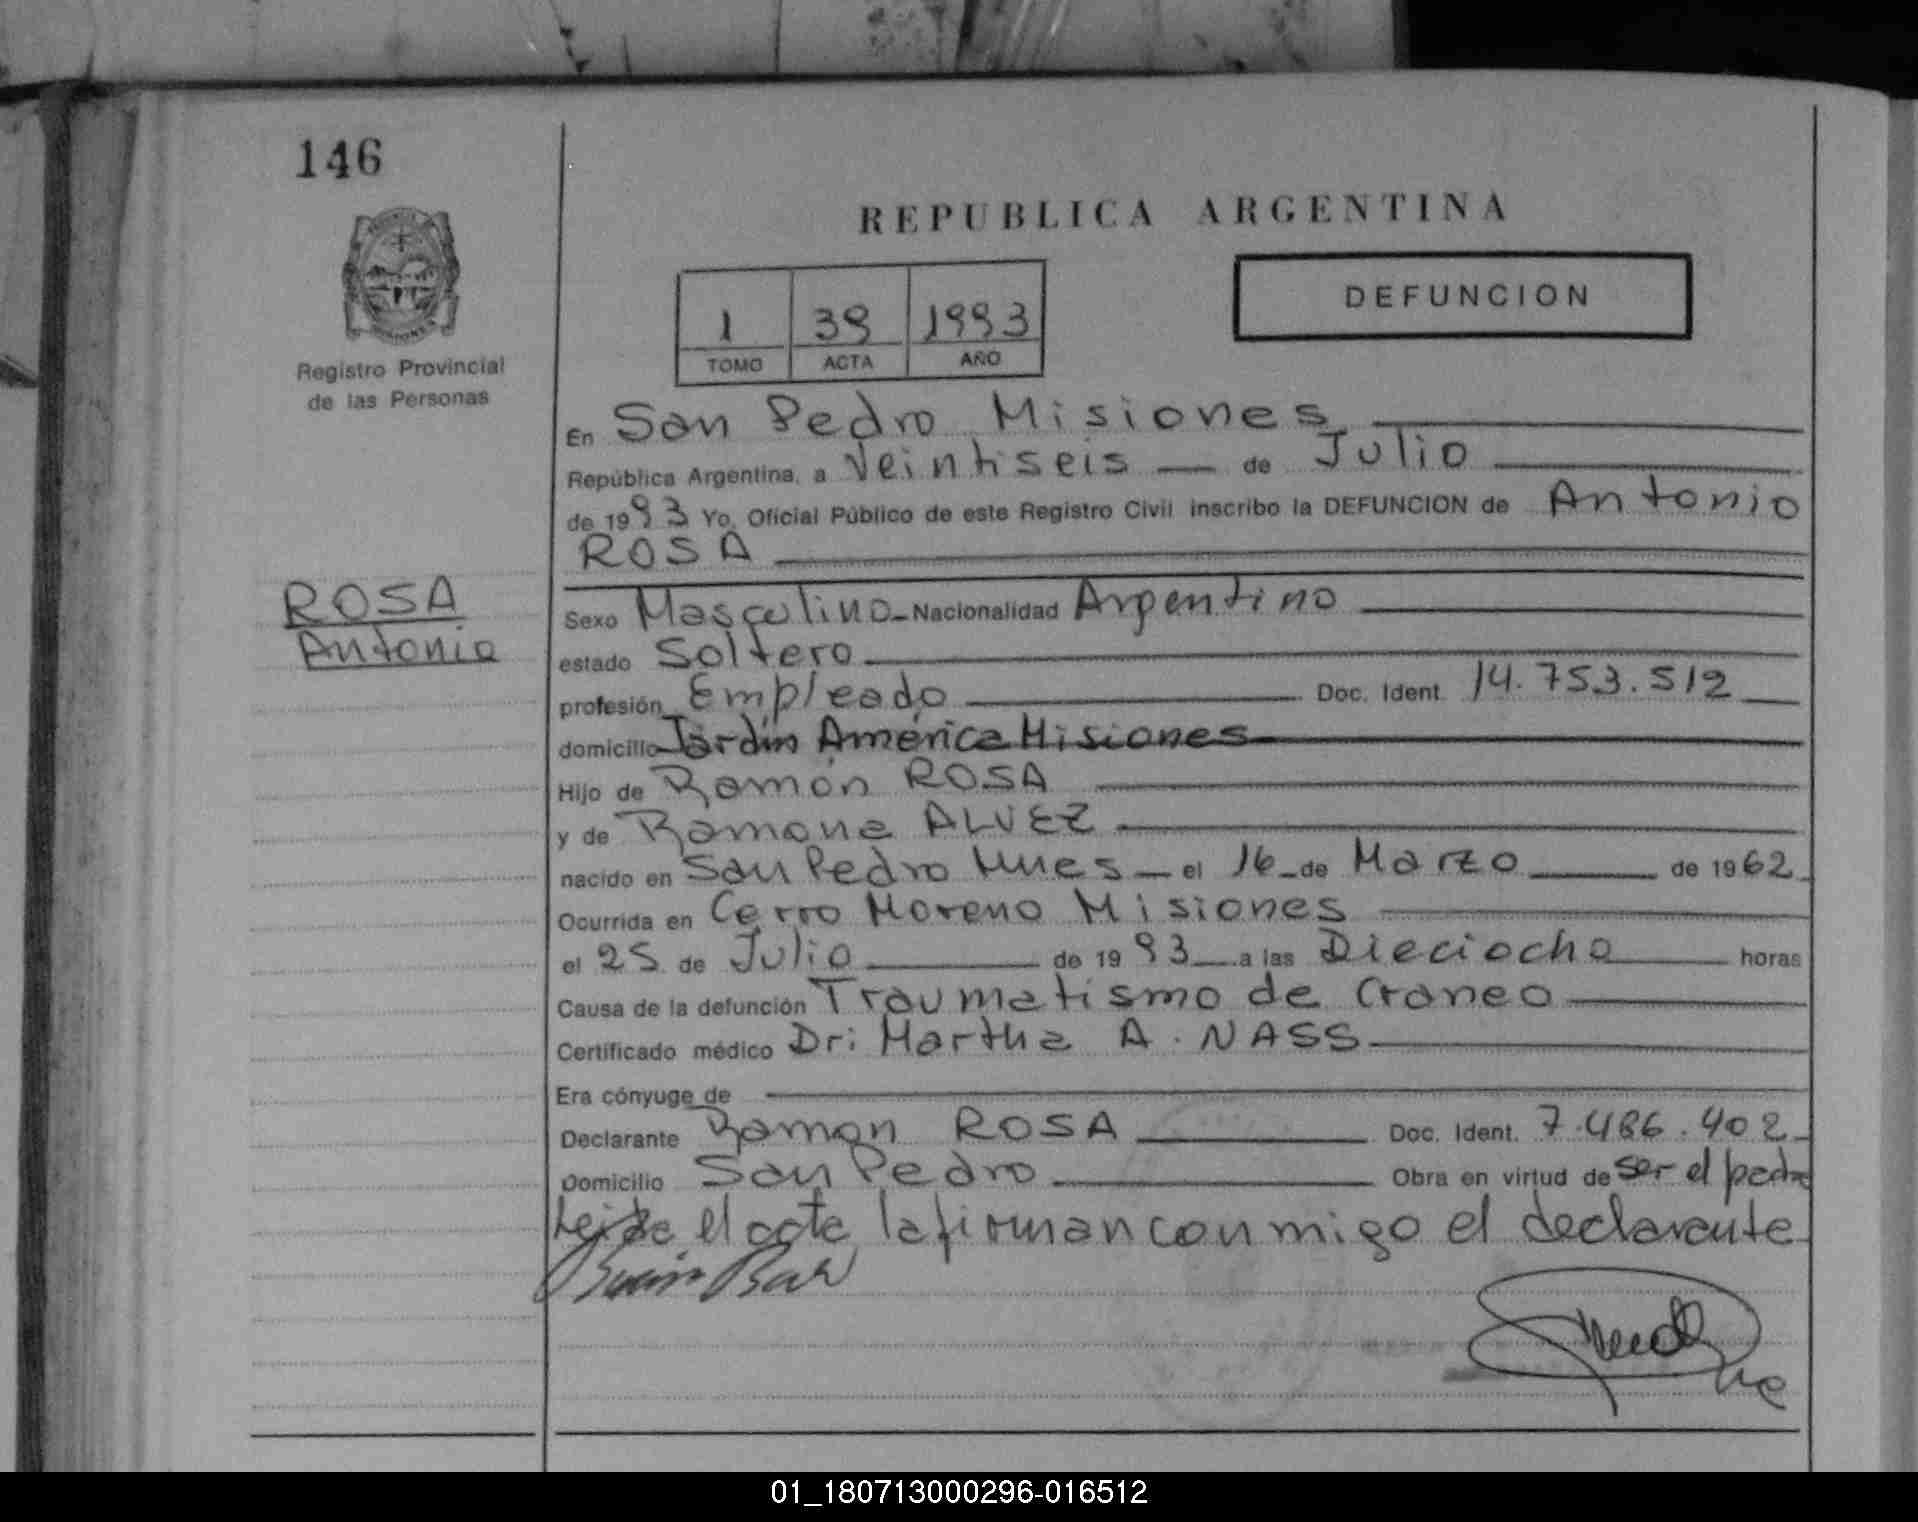 146
REPUBLICA ARGENTINA
DEFUNCION
1 39 1993
TOMO ACTA AÑO
Registro Provincial
de las Personas
En San Pedro Misiones
República Argentina, a Veintiseis de Julio
de 1993 Yo, Oficial Público de este Registro Civil inscribo la DEFUNCION de Antonio
ROSA
ROSA
Antonio
Sexo Masculino Nacionalidad Argentino
estado Soltero
profesión Empleado Doc. Ident. 14.753.512
domicilio Jardín América Misiones
Hijo de Ramón ROSA
y de Ramona ALVEZ
nacido en San Pedro Mnes el 16 de Marzo de 1962
Ocurrida en Cerro Moreno Misiones
el 25 de Julio de 1993 a las Dieciocho horas
Causa de la defunción Traumatismo de Craneo
Certificado médico Dr: Martha A. NASS
Era cónyuge de
Declarante Ramon ROSA Doc. Ident. 7.486.402
Domicilio San Pedro Obra en virtud de ser el padre
Leida el acta la firman conmigo el declarante
01_180713000296-016512